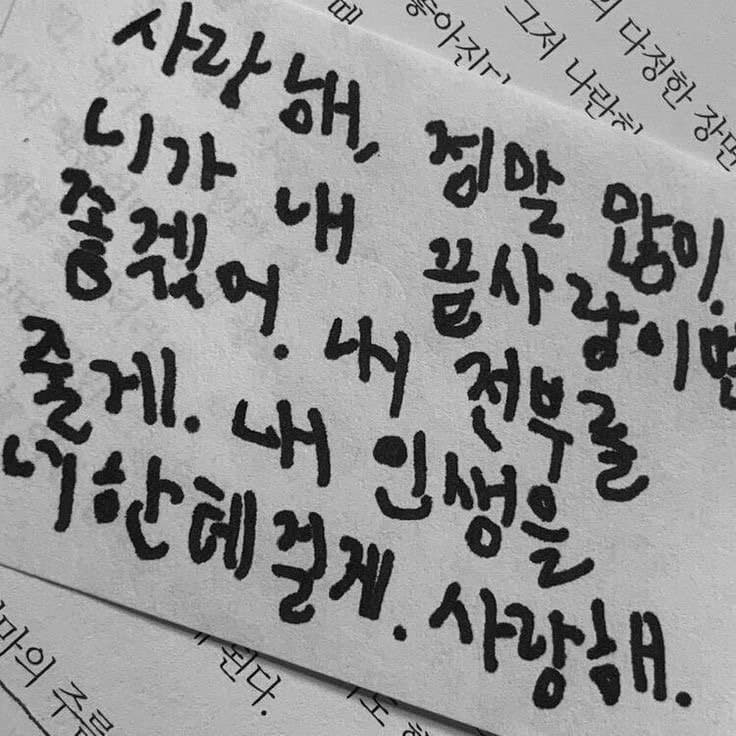 의 다정한 장면
그저 나란히
좋아진다
때
사랑해, 정말 많이.
니가 내 끝사랑이면
좋겠어. 내 전부를
줄게. 내 인생을
너한테 걸게. 사랑해.
된다.
마의 주름